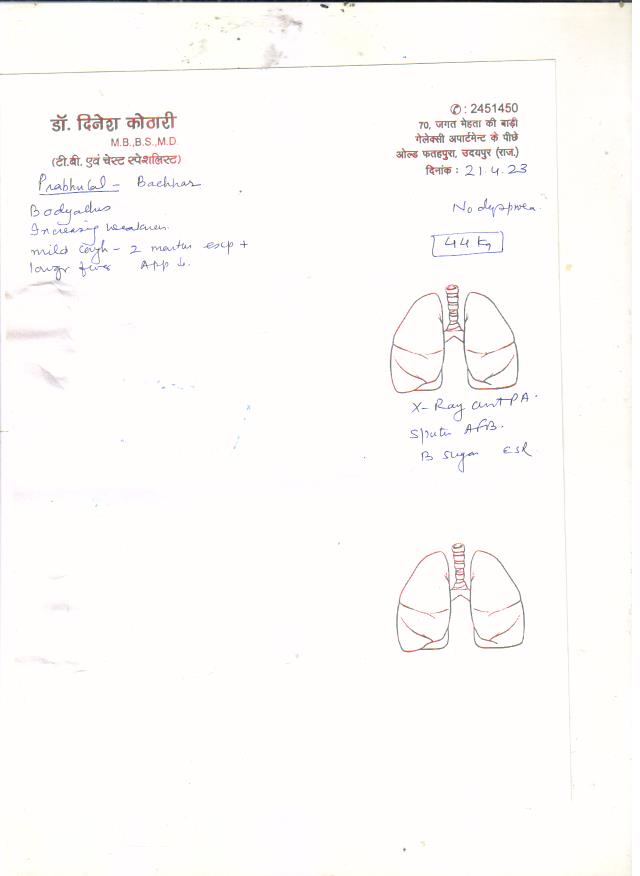 डॉ. दिनेश कोठारी
M.B.,B.S.,M.D.
(टी.बी. एवं चेस्ट स्पेशलिस्ट)
✆ : 2451450
70, जगत मेहता की बाड़ी
गेलेक्सी अपार्टमेन्ट के पीछे
ओल्ड फतहपुरा, उदयपुर (राज.)
दिनांक : 21.4.23
Prabhulal -
Bodyaches
Increasing weakness.
mild cough - 2 months +
fever App ↓.
No dyspnoea.
44 kg
X-Ray PA.
Sputum AFB.
B sugar ESR